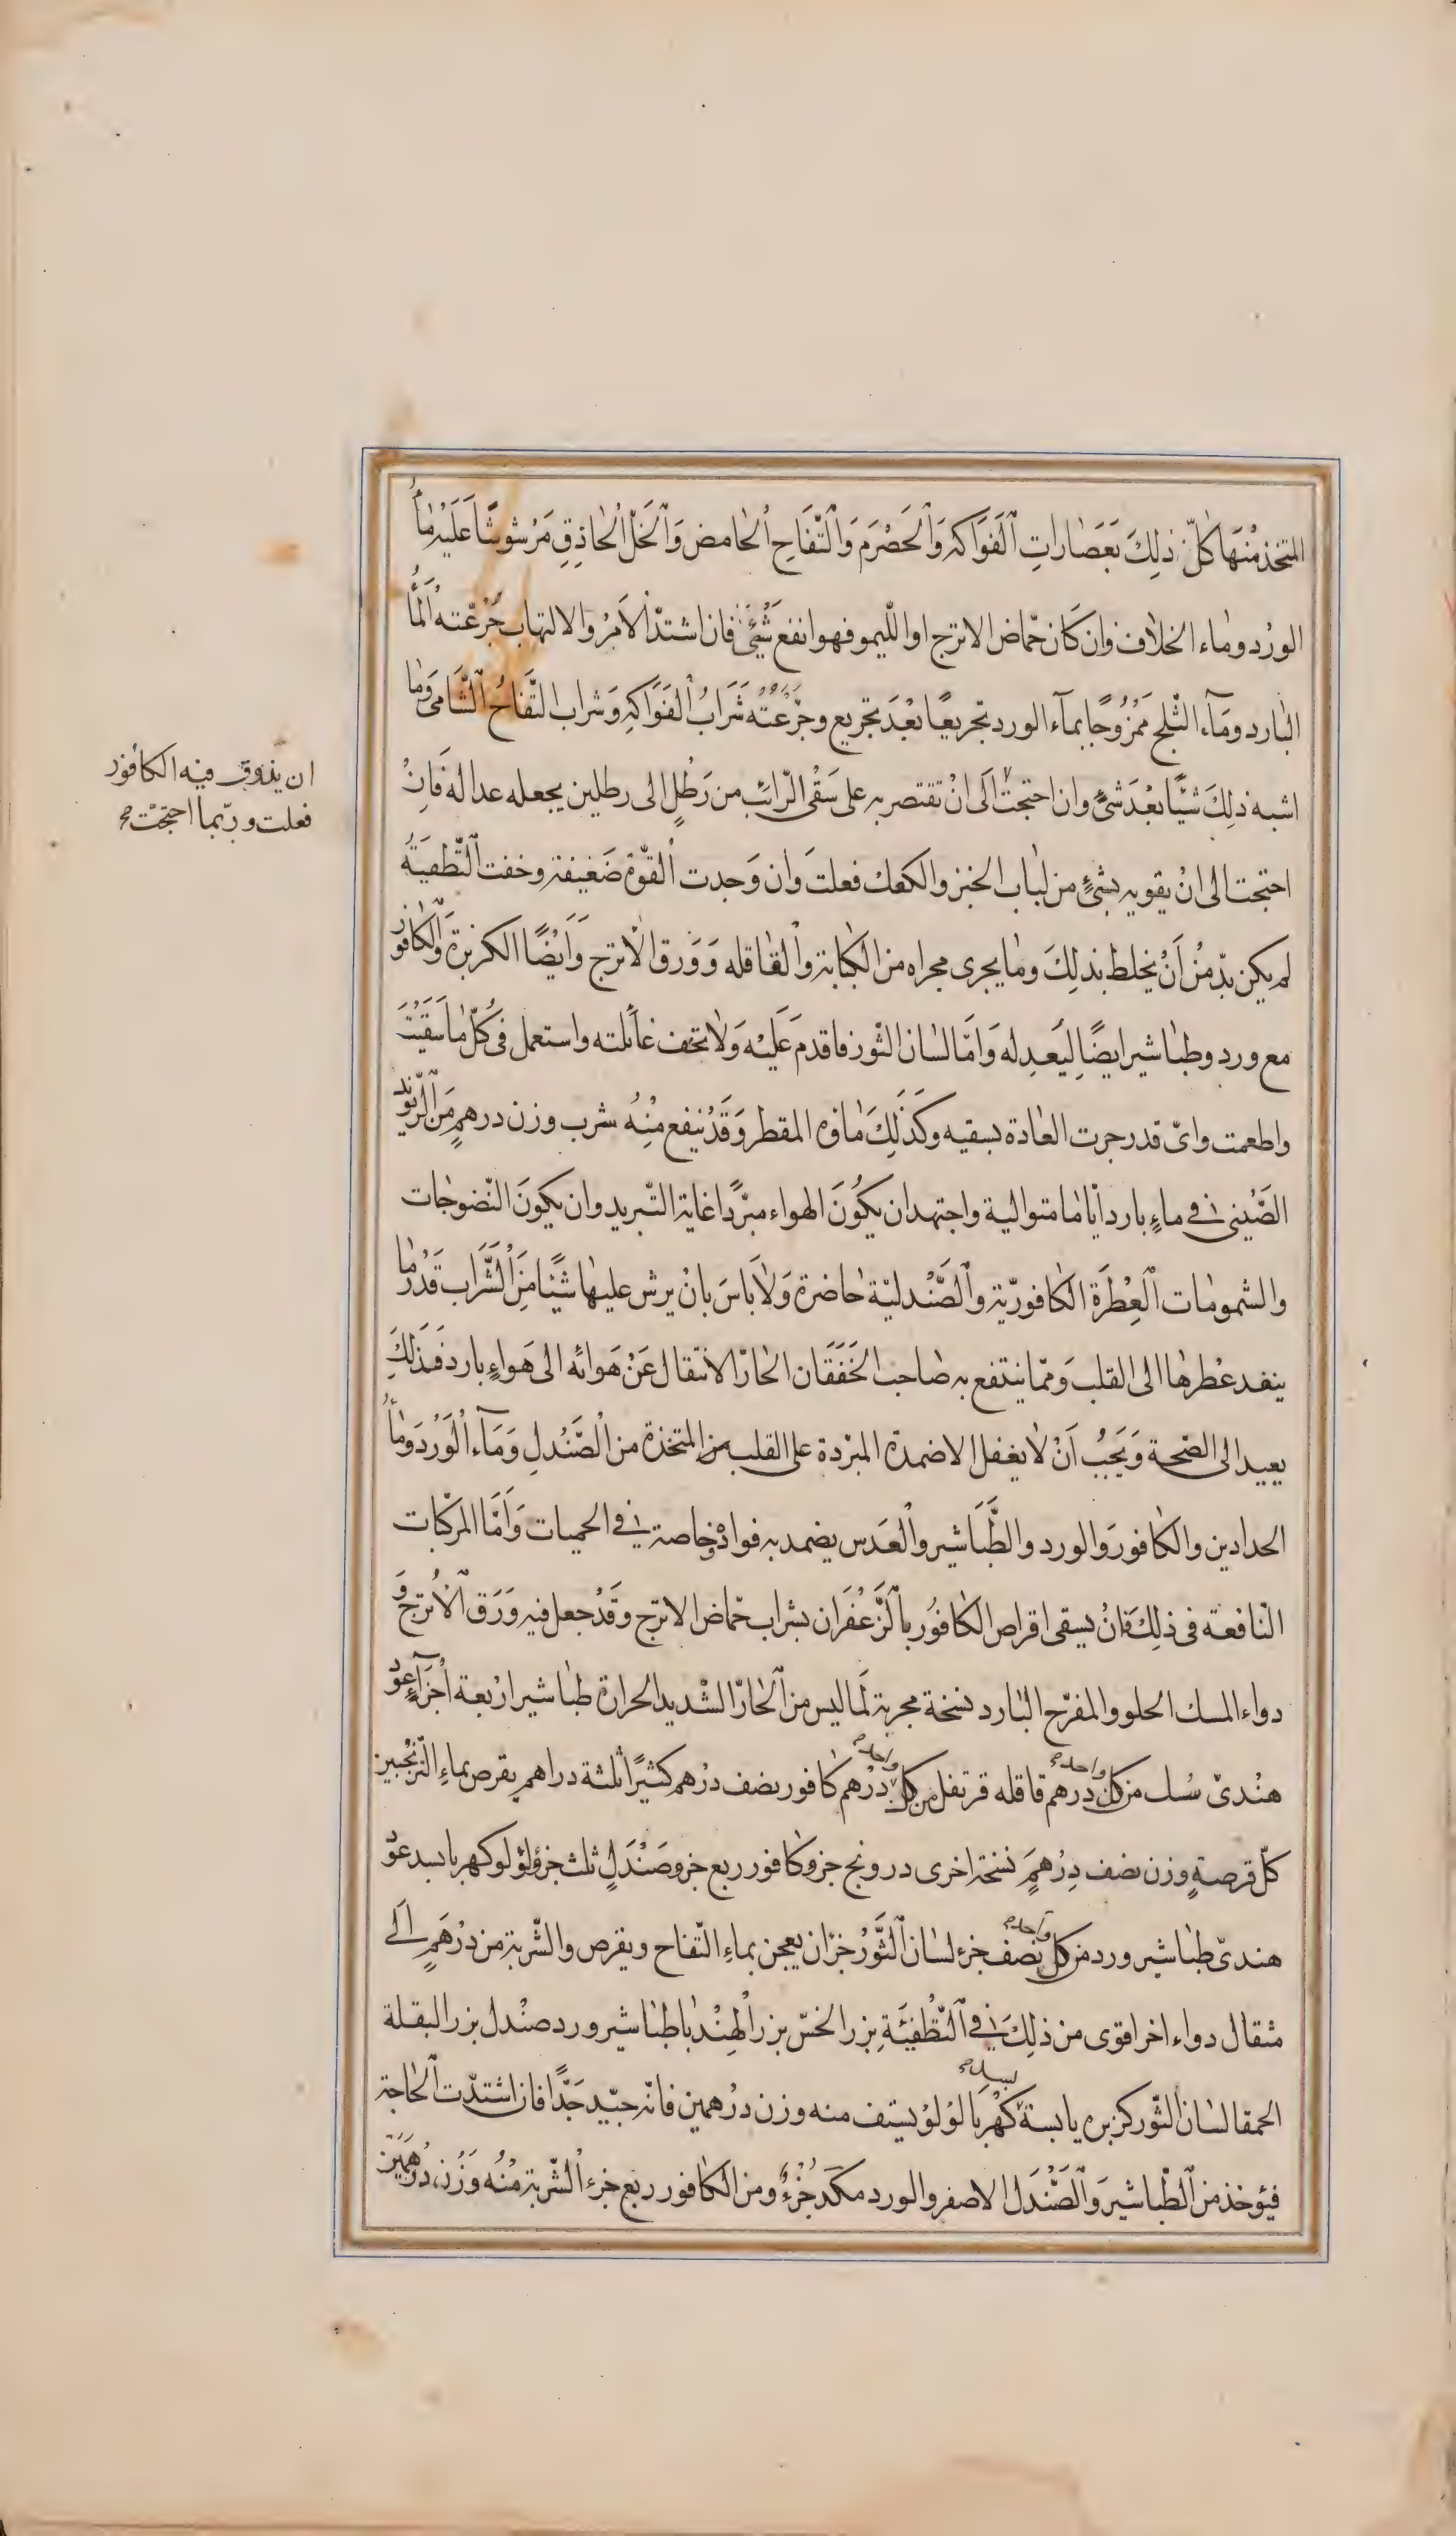 المتخذ منها كلّ ذلك بعصارات الفواكه والحصرم والتّفاح الحامض والخلّ الحاذق مرشوشًا عليه ماء
الورد وماء الخلاف وان كان حمّاض الاترج او اللّيمو فهو انفع شئ فان اشتدّ الامر والالتهاب جرّعته الماء
البارد وماء الثلج ممزوجًا بماء الورد تجريعًا بعد تجريع وجرّعته شراب الفواكه وشراب التّفاح الشّامى وما
اشبه ذلك شيًا بعد شئ وان احتجت الى ان تقتصر به على سقى الرّائب من رطل الى رطلين يجعله عداله فان
ان يذوّق فيه الكافور
فعلت وربّما احتجت صح
احتجت الى ان يقويه بشئ من لباب الخبز والكعك فعلت وان وجدت القوّة ضعيفة وخفت التّطفية
لم يكن بدّ من أن يخلط بذلك وما يجرى مجراه من الكبابة والقاقله وورق الاترج وأيضًا الكزبرة والكافور
مع ورد وطباشير ايضًا ليعدله وامّا لسان الثّور فاقدم عليه ولا تخف غائلته واستعمل فى كلّ ما سقيت
واطعمت واىّ قدر جرت العادة بسقيه وكذلك ماؤه المقطر وقد ينفع منه شرب وزن درهم من الرّيوند
الصّينى فى ماء بارد أيّاما متوالية واجتهد ان يكون الهواء مبرّدا غاية التّبريد وان يكون النّضوجات
والشمومات العطرة الكافوريّة والصّندليّة حاضرة ولا باس بان يرش عليها شيئًا من الشّراب قدر ما
ينفد عطرها الى القلب وممّا ينتفع به صاحب الخفقان الحارّ الانتقال عن هوائه الى هواء بارد فذلك
يعيد الى الصّحة ويجب أن لا يغفل الاضمدة المبرّدة على القلب من المتخذة من الصّندل وماء الورد وماء
الحدادين والكافور والورد والطّباشير والعدس يضمد به فواده وخاصة فى الحميات وأمّا المركبات
النّافعة فى ذلك فان يسقى اقراص الكافور بالزّعفران بشراب حمّاض الاترج وقد جعل فيه ورق الاترج و
دواء المسك الحلو والمفرّح البارد نسخة مجربة لما ليس من الحارّ الشّديد الحرارة طباشير اربعة أجزاء عود
هندىّ سُك من كل واحد درهم قاقله قرنفل من كل واحد درهم كافور نصف درهم كثيرًا ثلثة دراهم يقرص بماء التّرنجبين
كلّ قرصة وزن نصف درهم نسخة اخرى درونج جزو كافور ربع جزو صندل ثلث جزو لؤلؤ كهربا بسد عود
هندىّ طباشير ورد من كل واحد نصف جزء لسان الثّور جزان يعجن بماء التّفاح ويقرص والشّربة من درهم الى
مثقال دواء اخر اقوى من ذلك فى التّطفئة بزر الخسّ بزر الهندبا طباشير ورد صندل بزر البقلة
الحمقا لسان الثّور كزبره يابسة بسد كهربا لؤلؤ يستف منه وزن درهمين فانّه جيّد جدًّا فان اشتدّت الحاجة
فيؤخذ من الطّباشير والصّندل الاصفر والورد مكد جزء ومن الكافور ربع جزء الشّربة منه وزن درهمين